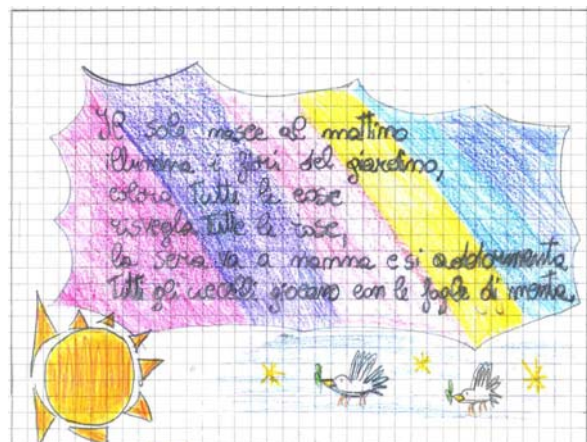 Il sole nasce al mattino
illumina i fiori del giardino,
colora tutte le cose
risveglia tutte le rose,
la sera va a nanna e si addormenta.
Tutti gli uccelli giocano con le foglie di menta.